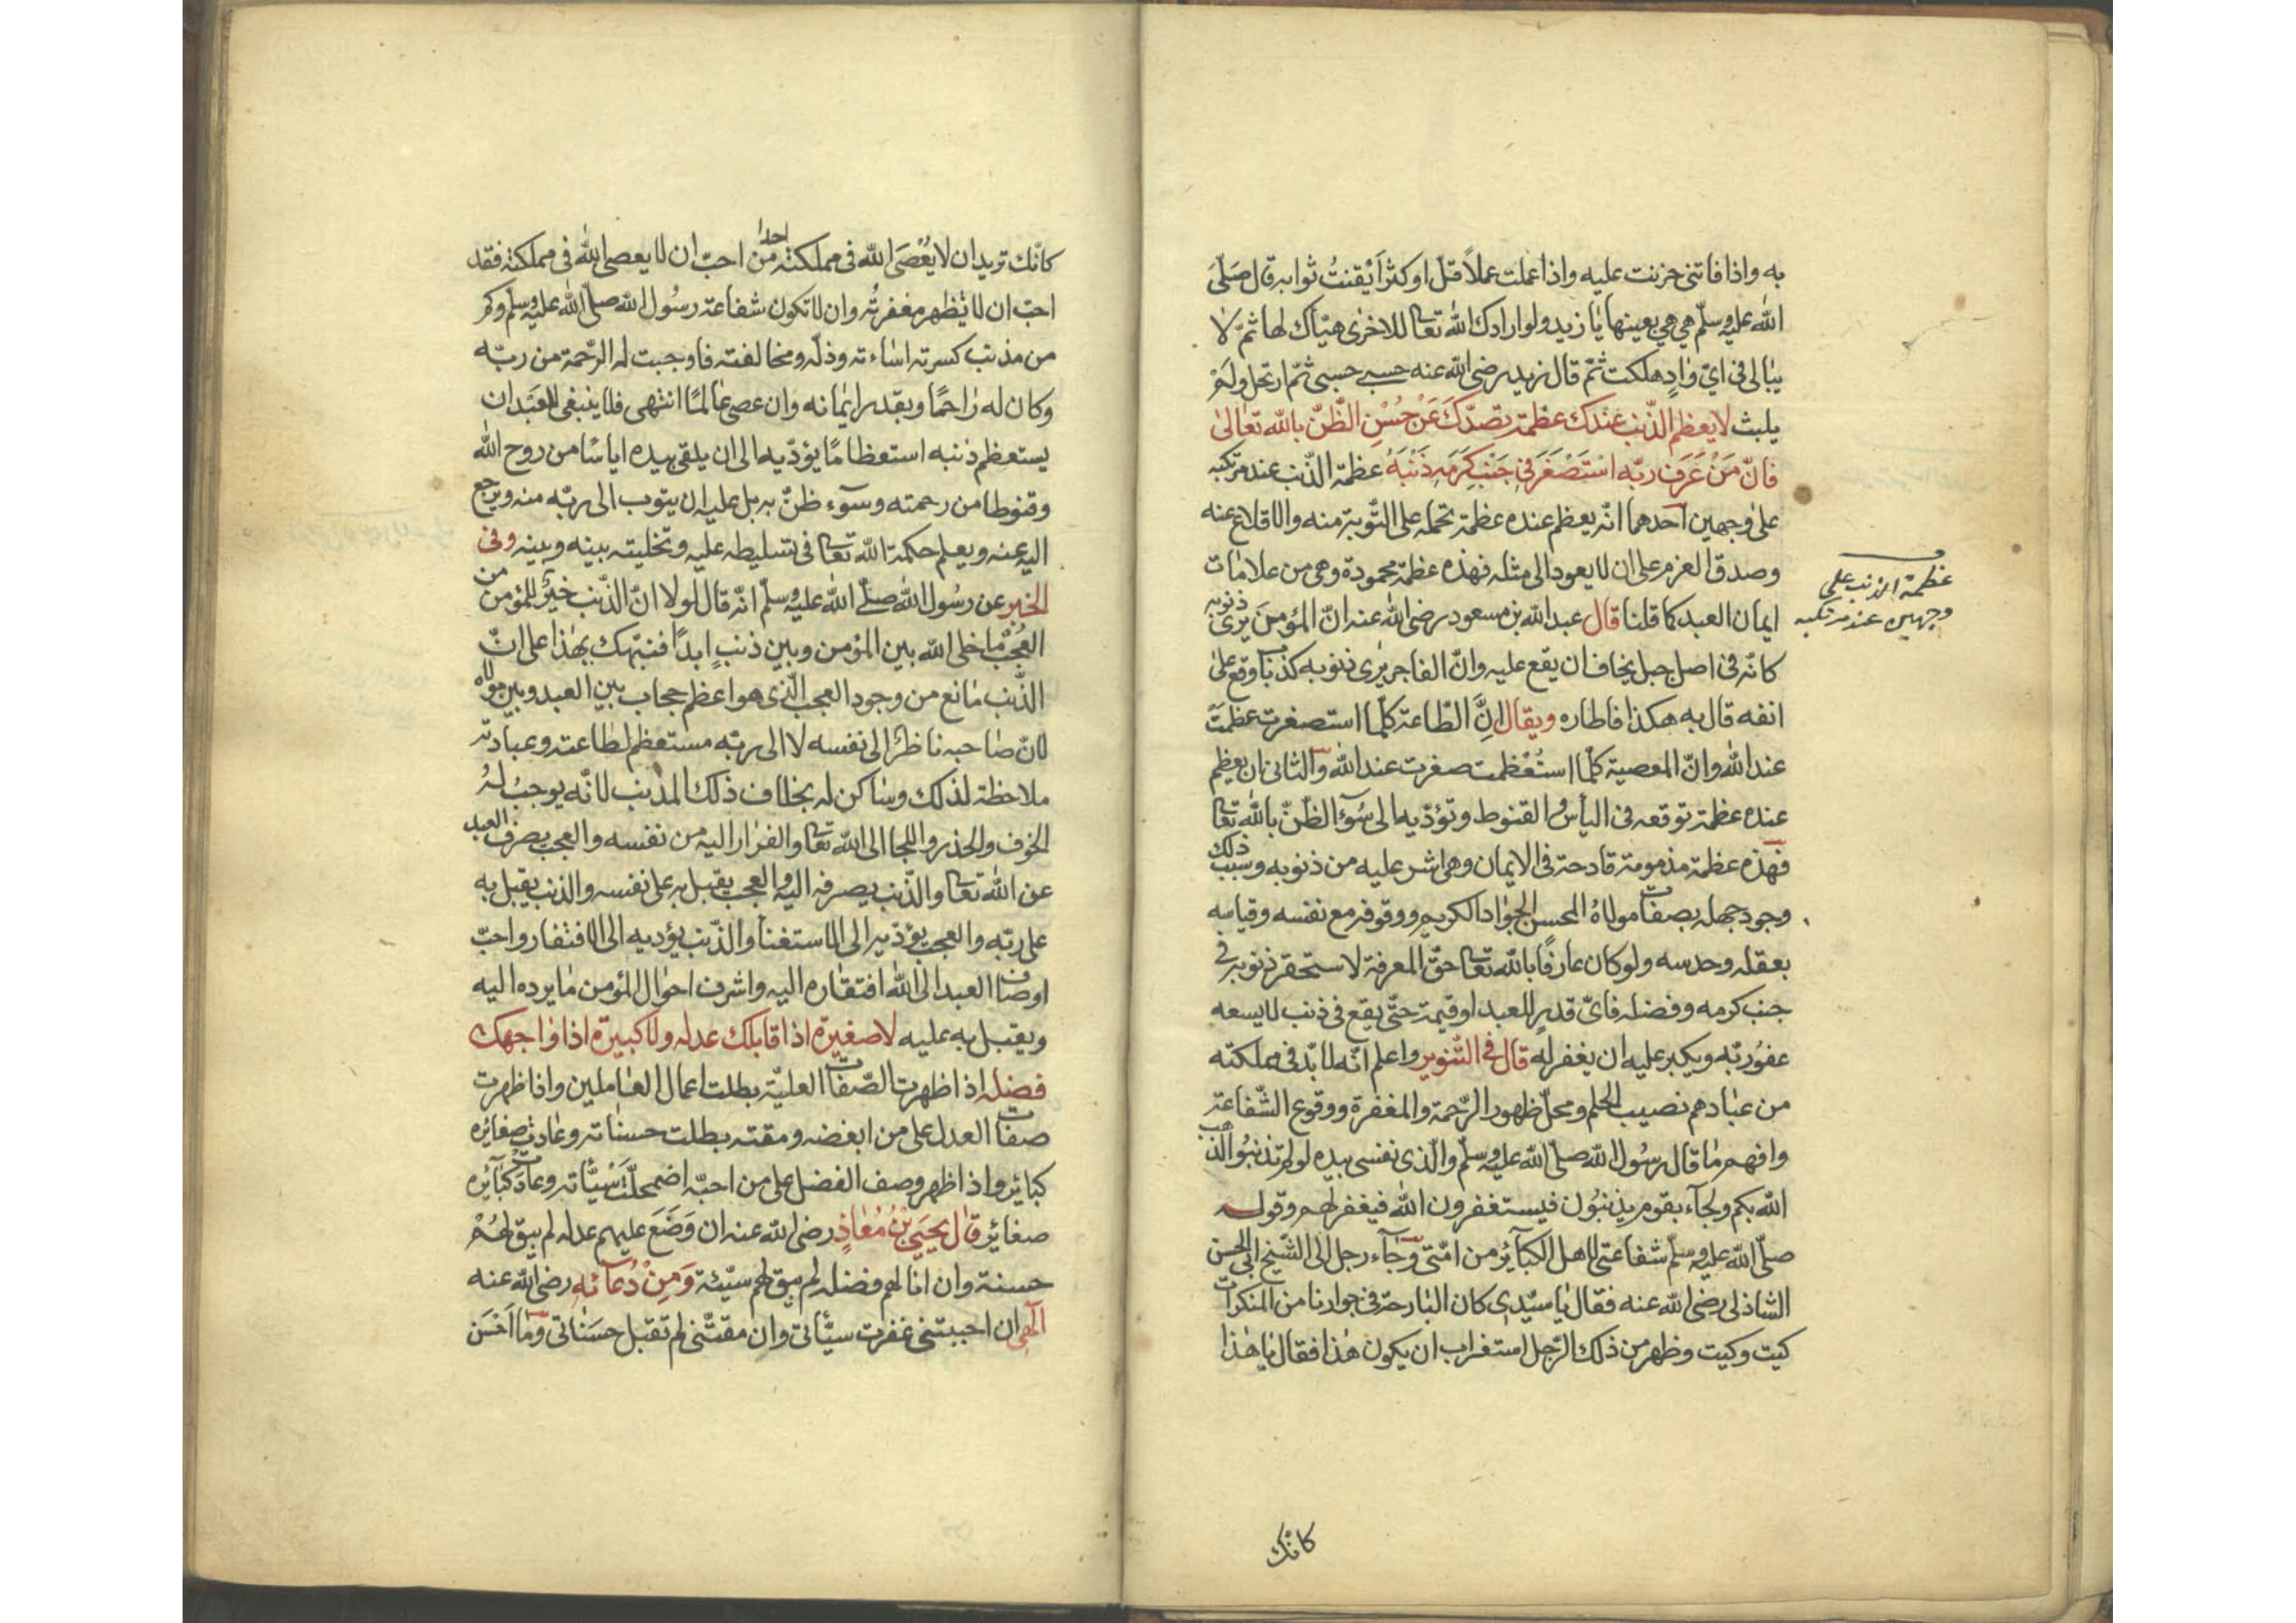 به واذا فاتنى حزنت عليه واذا عملت عملاً قلّ او كثر اَيْقنتُ ثوابه قال صَلّىَ
الله عليه وسلّم هي هي بعينها يا زيد ولو ارادك الله تعالى للاخرى هيّأك لها ثمّ لا
يبالى فى ايّ وٰادٍ هلكت ثمّ قال زيد رضى الله عنه حسبى حسبى ثمّ ارتحل ولَمْ
يلبث لا يعظم الذّنب عندك عظمة تصدّكَ عَنْ حُسْنِ الظّنّ بالله تعالىٰ
فانّ مَنْ عَرَف ربّه اسْتَصْغَرَ فى جَنْبِ كَرَمِهِ ذَنْبَهُ عظمة الذّنب عند مرتكبه
على وجهين احدهما انّه يعظم عنده عظمة تحمله على التّوبة منه والاقلاع عنه
وصدق العزم على ان لا يعود الى مثله فهذه عظمة محمودة وهى من علامات
ايمان العبد كما قلنا قال عبد الله بن مسعود رضى الله عنه انّ المؤمنَ يَرىٰ ذنوبه
كانّه فى اصل جبل يخاف ان يقع عليه وانّ الفاجر يرى ذنوبه كذباب وقع علىٰ
انفه قال به هكذا فاطاره ويقال انَّ الطّاعة كلّما استصغرت عظمَتْ
عند الله وانّ المعصية كلّما استُعْظمت صغرت عند الله والثانى ان يعظم
عنده عظمة توقعه فى اليأس والقنوط وتؤدّيه الى سُوٓء الظّنّ بالله تعالى
فهذه عظمة مذمومة قادحة فى الايمان وهى اشر عليه من ذنوبه وسبب ذلك
وجود جهله بصفات مولاهُ المحسن الجوٰاد الكريم ووقوفه مع نفسه وقياسه
بعقله وحدسه ولو كان عارفًا بالله تعالى حقّ المعرفة لاستحقر ذنوبه فى
جنب كرمه وفضله فاىّ قدرٍ للعبد او قيمة حتّى يقع فى ذنب لا يسعه
عفوُ ربّه ويكبر عليه ان يغفر له قال فى التّنوير واعلم انّه لا بّد فى مملكته
من عبٰاد هم نصيب الحلم ومحلّ ظهور الرّحمة والمغفرة ووقوع الشّفاعة
وافهم مٰا قال رسُول الله صلّى الله عليه وسلّم والّذى نفسى بيده لو لم تذنبُوا لذهب
الله بكم ولجآء بقوم يذنبُون فيستغفرون الله فيغفر لهم وقوله
صلّى الله عليه وسلّم شفاعتى لاهل الكبآئر من امّتى وجآء رجل الى الشّيخ ابى الحسن
الشاذلى رضى الله عنه فقال يٰا سيّدى كان البٰارحة فى جوارنا من المنكرات
كيت وكيت وظهر من ذلك الرّجل استغراب ان يكون هٰذا فقال يٰا هٰذا
عظمة الذنب على
وجهين عند مرتكبه
كانّك
كانّك تريد ان لا يُعْصَى الله فى مملكته من احبّ ان لا يعصى الله فى مملكته فقد
احدا
احبّ ان لا يَظهر مغفرتُه وان لا تكون شفاعة رسُول الله صلّى الله عليه وسلّم وكم
من مذنب كسرته اسٰاءته وذلّه ومخالفته فاوجبت له الرّحمة من ربّه
وكان له رٰاحمًا وبقدر ايمٰانه وان عصى عٰالمًا انتهى فلا ينبغى للعَبْد ان
يستعظم ذنبه استعظامًا يؤدّيه الى ان يلقى بيده اياسًا من روح الله
وقنوطا من رحمته وسوٓء ظنّ به بل عليه ان يتوب الى ربّه منه ويرجع
اليه عنه ويعلم حكمة الله تعالى فى تسليطه عليه وتخليته بينه وبينه وفى
الخبر عن رسُول الله صلّى الله عليه وسلّم انّه قال لولا انّ الذّنب خيرٌ للمؤمن من
العُجْب ما خلى الله بين المؤمن وبين ذنبٍ ابدًا فنبّهك بهٰذا على انّ
الذّنب مٰانع من وجود العجب الّذى هو اعظم حجاب بين العبد وبين مولاه
لانّ صٰاحبه ناظرٌ الى نفسه لا الى ربّه مستعظم لطاعته وعبادته
ملاحظة لذلك وسٰاكن له بخلاف ذلك المذنب لانّه يوجبُ لهُ
الخوف والحذر واللجا الى الله تعالى والفرٰار اليه من نفسه والعجب يصرف العبد
عن الله تعالى والذّنب يصرفه اليه والعجب يقبل به على نفسه والذنب يقبل به
على ربّه والعجب يؤدّيه الى الاستغنأ والذّنب يؤديه الى الافتقار واحبّ
اوصاف العبد الى الله افتقاره اليه واشرف احوٰال المؤمن مٰا يرده اليه
ويقبل به عليه لا صغيرة اذا قابلك عدله ولا كبيرة اذا وٰاجهك
فضله اذا ظهرت الصّفات العليّة بطلت اعمال العٰاملين واذا ظهرت
صفات العدل على من ابغضه ومقته بطلت حسنٰاته وعٰادت صغائره
كبائر واذا ظهر وصف الفضل على من احبّه اضمحلّت سَيّئاته وعادت كبٰآئره
صغائر قال يحيَى بْنُ مُعٰاذٍ رضى الله عنه ان وَضَعَ عليهم عدله لم يبق لهُمْ
حسنة وان انا لهم فضله لم يبق لهم سيّئة وَمِنْ دُعآئه رضى الله عنه
آلهى ان احببتنى غفرت سيّئاتى وان مقتّنى لم تقبل حسَنٰاتى ومٰا اَحْسَن